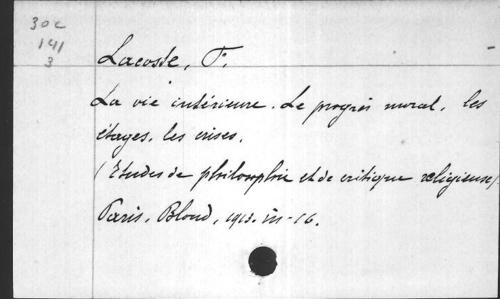 30c
141
3
Lacoste, F.
La vie intérieure. Le progrès moral, les
étapes, les crises.
(Etudes de philosophie et de critique religieuse).
Paris, Bloud, 1913. in-16.